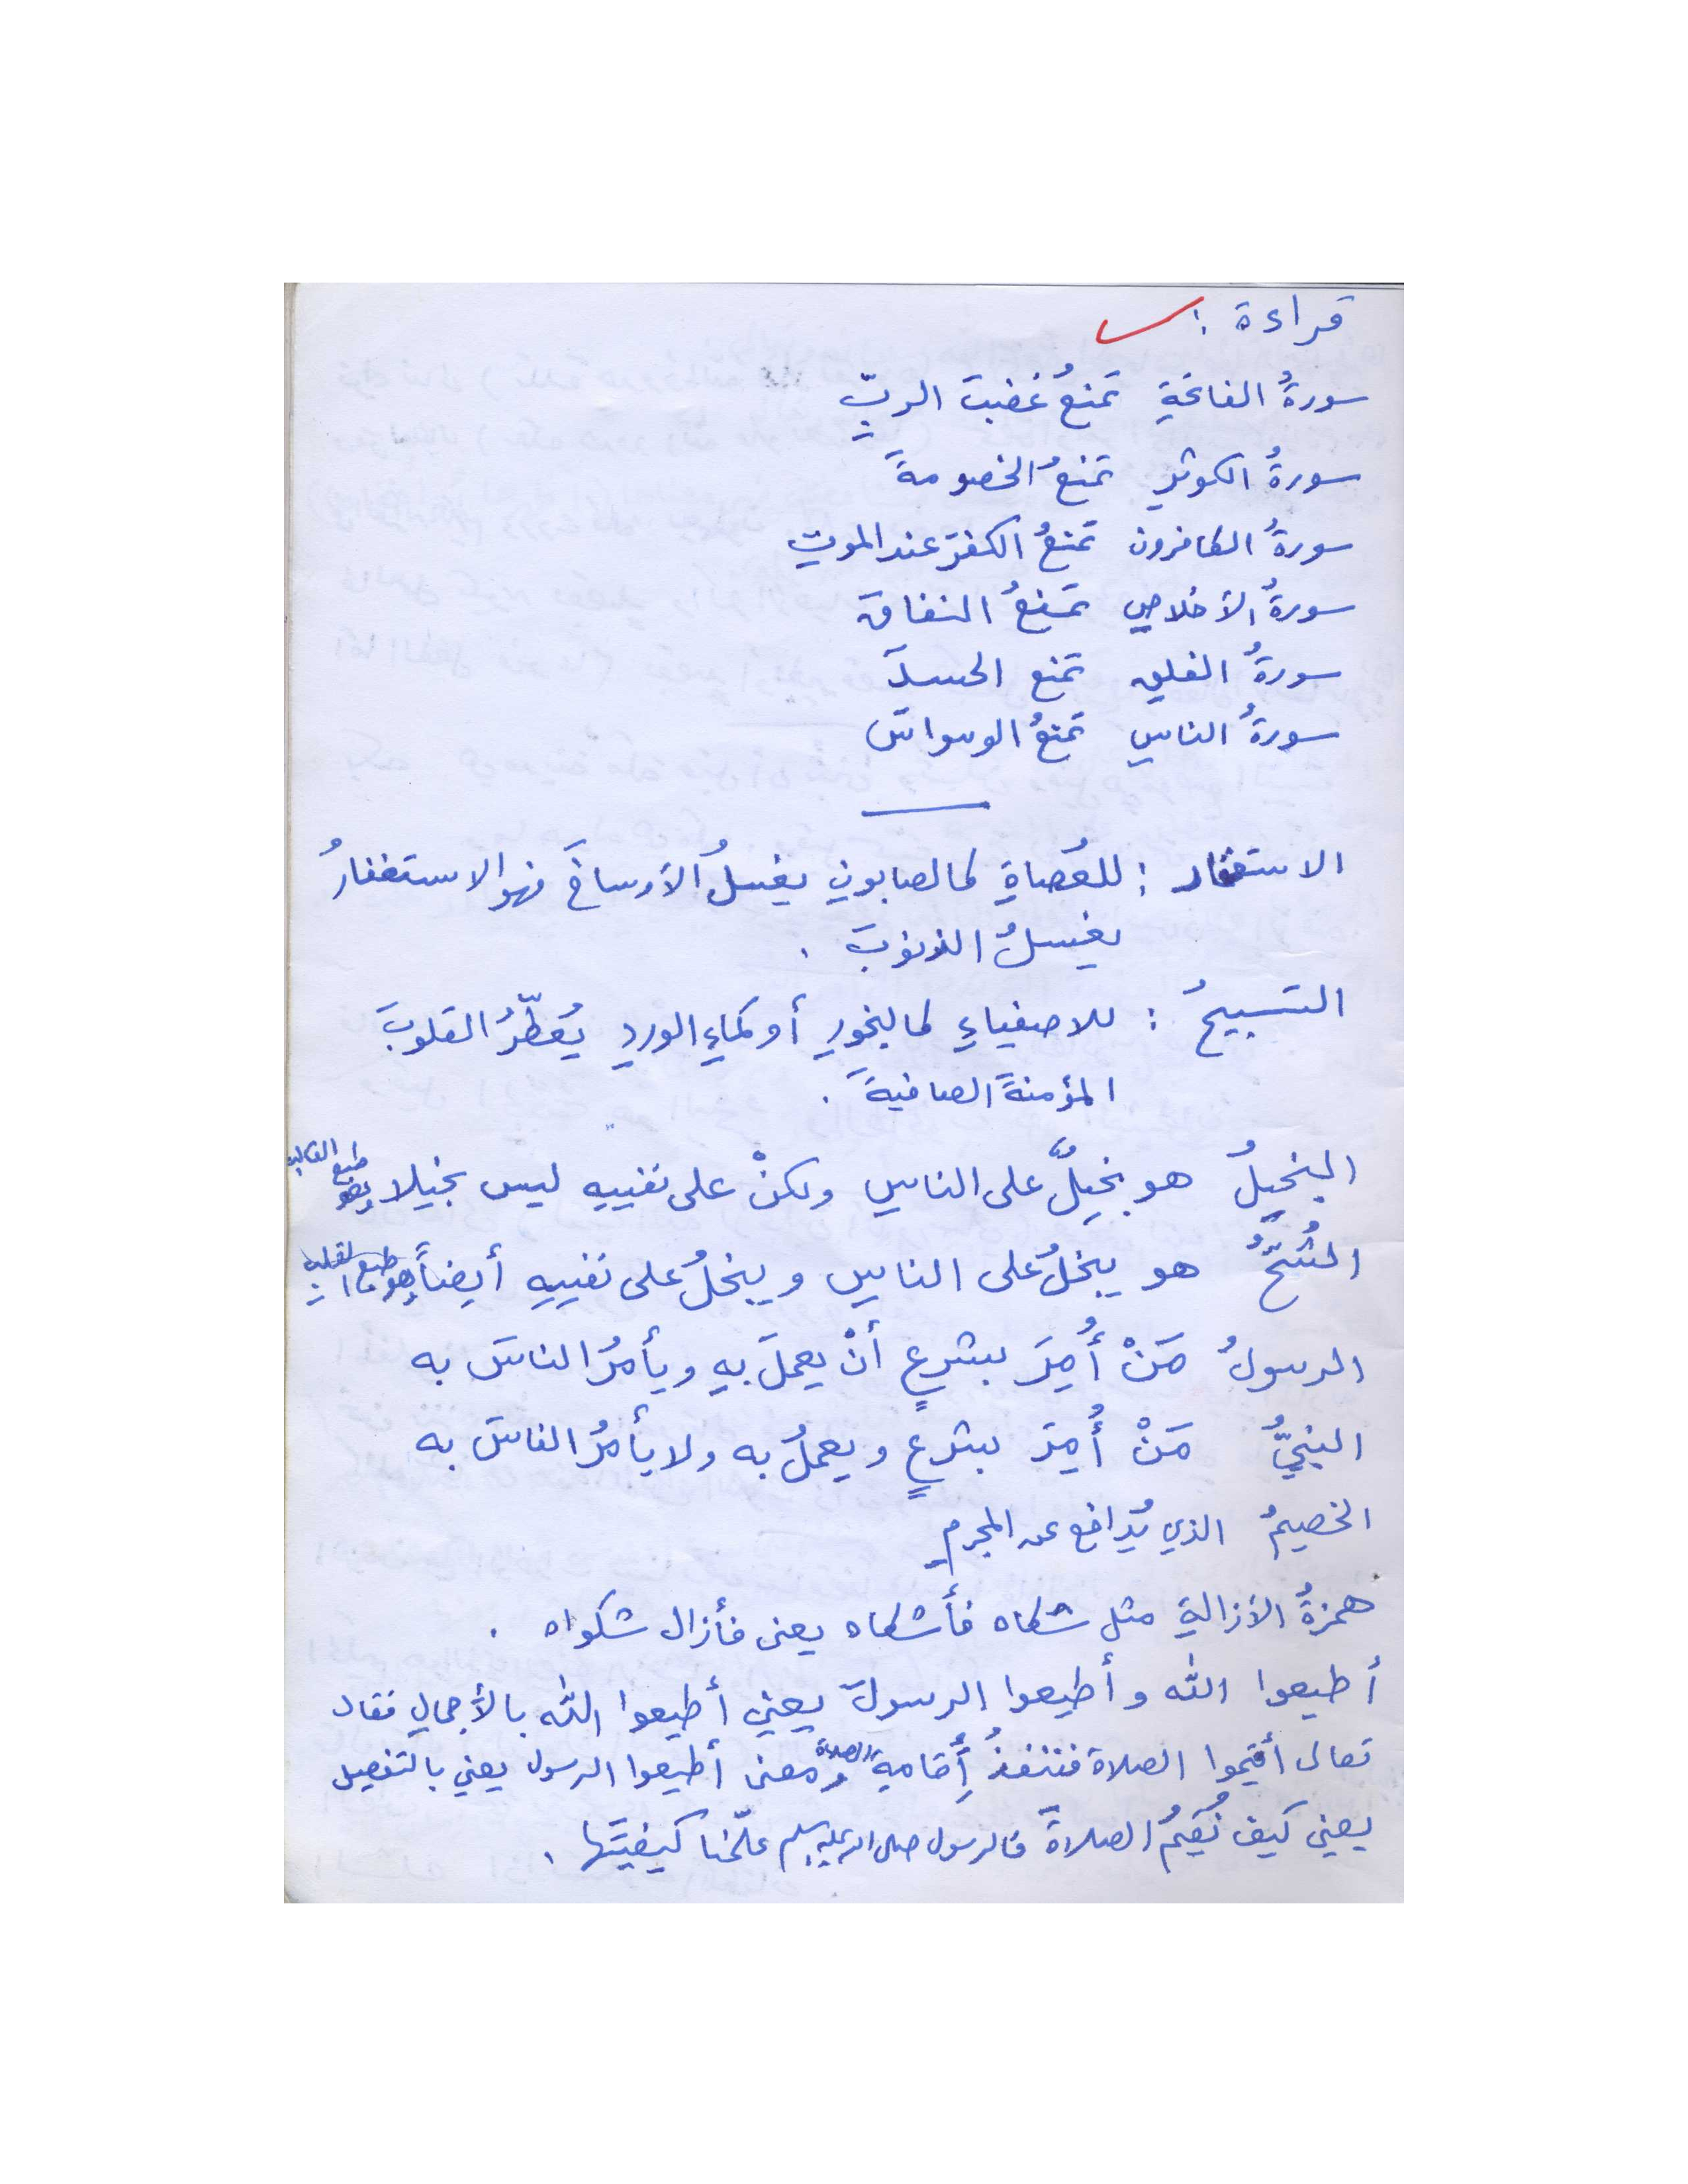 قراءة :
سورةُ الفاتحةِ تمنعُ غضبَ الربِّ
سورةُ الكوثرِ تمنعُ الخصومةَ
سورةُ الكافرون تمنعُ الكفرَ عند الموتِ
سورةُ الأخلاصِ تمنعُ النفاقَ
سورةُ الفلقِ تمنع الحسدَ
سورةُ الناسِ تمنعُ الوسواسَ
الاستغفار : للعُصاةِ كالصابونِ يغسلُ الأوساخَ فهو الاستغفارُ
يغسلُ الذنوبَ .
التسبيحُ : للاصفياءِ كالبخورِ أو كماءِ الوردِ يُعطّرُ القلوبَ
المؤمنةَ الصافيةَ .
البخيلُ هو بخيلٌ على الناسِ ولكنْ على نفسِهِ ليس بخيلا وهو طبع القالب
الشُحُّ هو يبخلُ على الناسِ ويبخلُ على نفسِهِ أيضاً وهو طبع القلب
الرسولُ مَنْ أُمِرَ بشرعٍ أنْ يعملَ بهِ ويأمرُ الناسَ به
النبيُّ مَنْ أُمِرَ بشرعٍ ويعملُ به ولا يأمرُ الناسَ به
الخصيمُ الذي يُدافع عن المجرمِ
همزةُ الأزالةِ مثل شكاه فأشكاه يعنى فأزال شكواه .
أطيعوا الله وأطيعوا الرسولَ يعني أطيعوا الله بالأجمالِ فقال
تعالى أقيموا الصلاة فتنفذُ أِقامة الصلاة ومعنى أطيعوا الرسول يعني بالتفصيل
يعني كيف نُقيمُ الصلاةَ فالرسول صلى الله عليه وسلم علّمنا كيفيتَها .